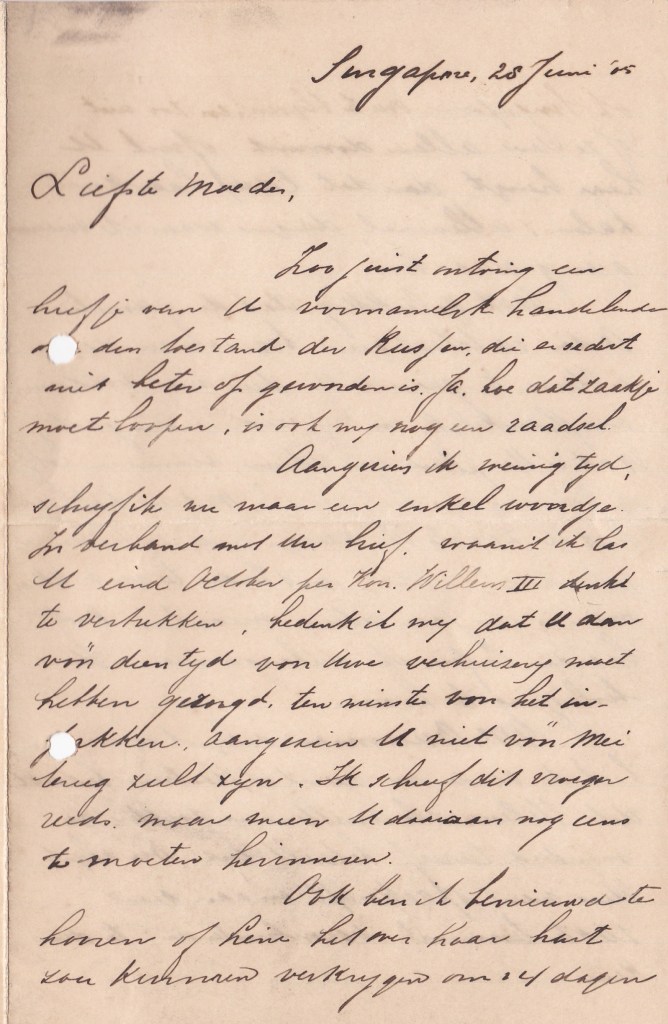 Singapore, 28 Juni '05
Liefste Moeder,
Zoo juist ontving een
briefje van U voornamelijk handelende
den toestand der Russen, die er sedert
niet beter op geworden is. Ja, hoe dat zaakje
moet loopen, is ook my nog een raadsel.
Aangezien ik weinig tyd,
schryf ik nu maar een enkel woordje.
In verband met Uw brief, waarin ik las
U eind October per Kon. Willem III denkt
te vertrekken, bedenk ik my dat U dan
vóór dien tyd voor Uwe verhuizing moet
hebben gezorgd, ten minste voor het in-
pakken, aangezien U niet vóór Mei
terug zult zyn. Ik schreef dit vroeger
reeds, maar meen U daaraan nog eens
te moeten herinneren.
Ook ben ik benieuwd te
hooren of het over haar hart
zou kunnen verkrygen om 14 dagen